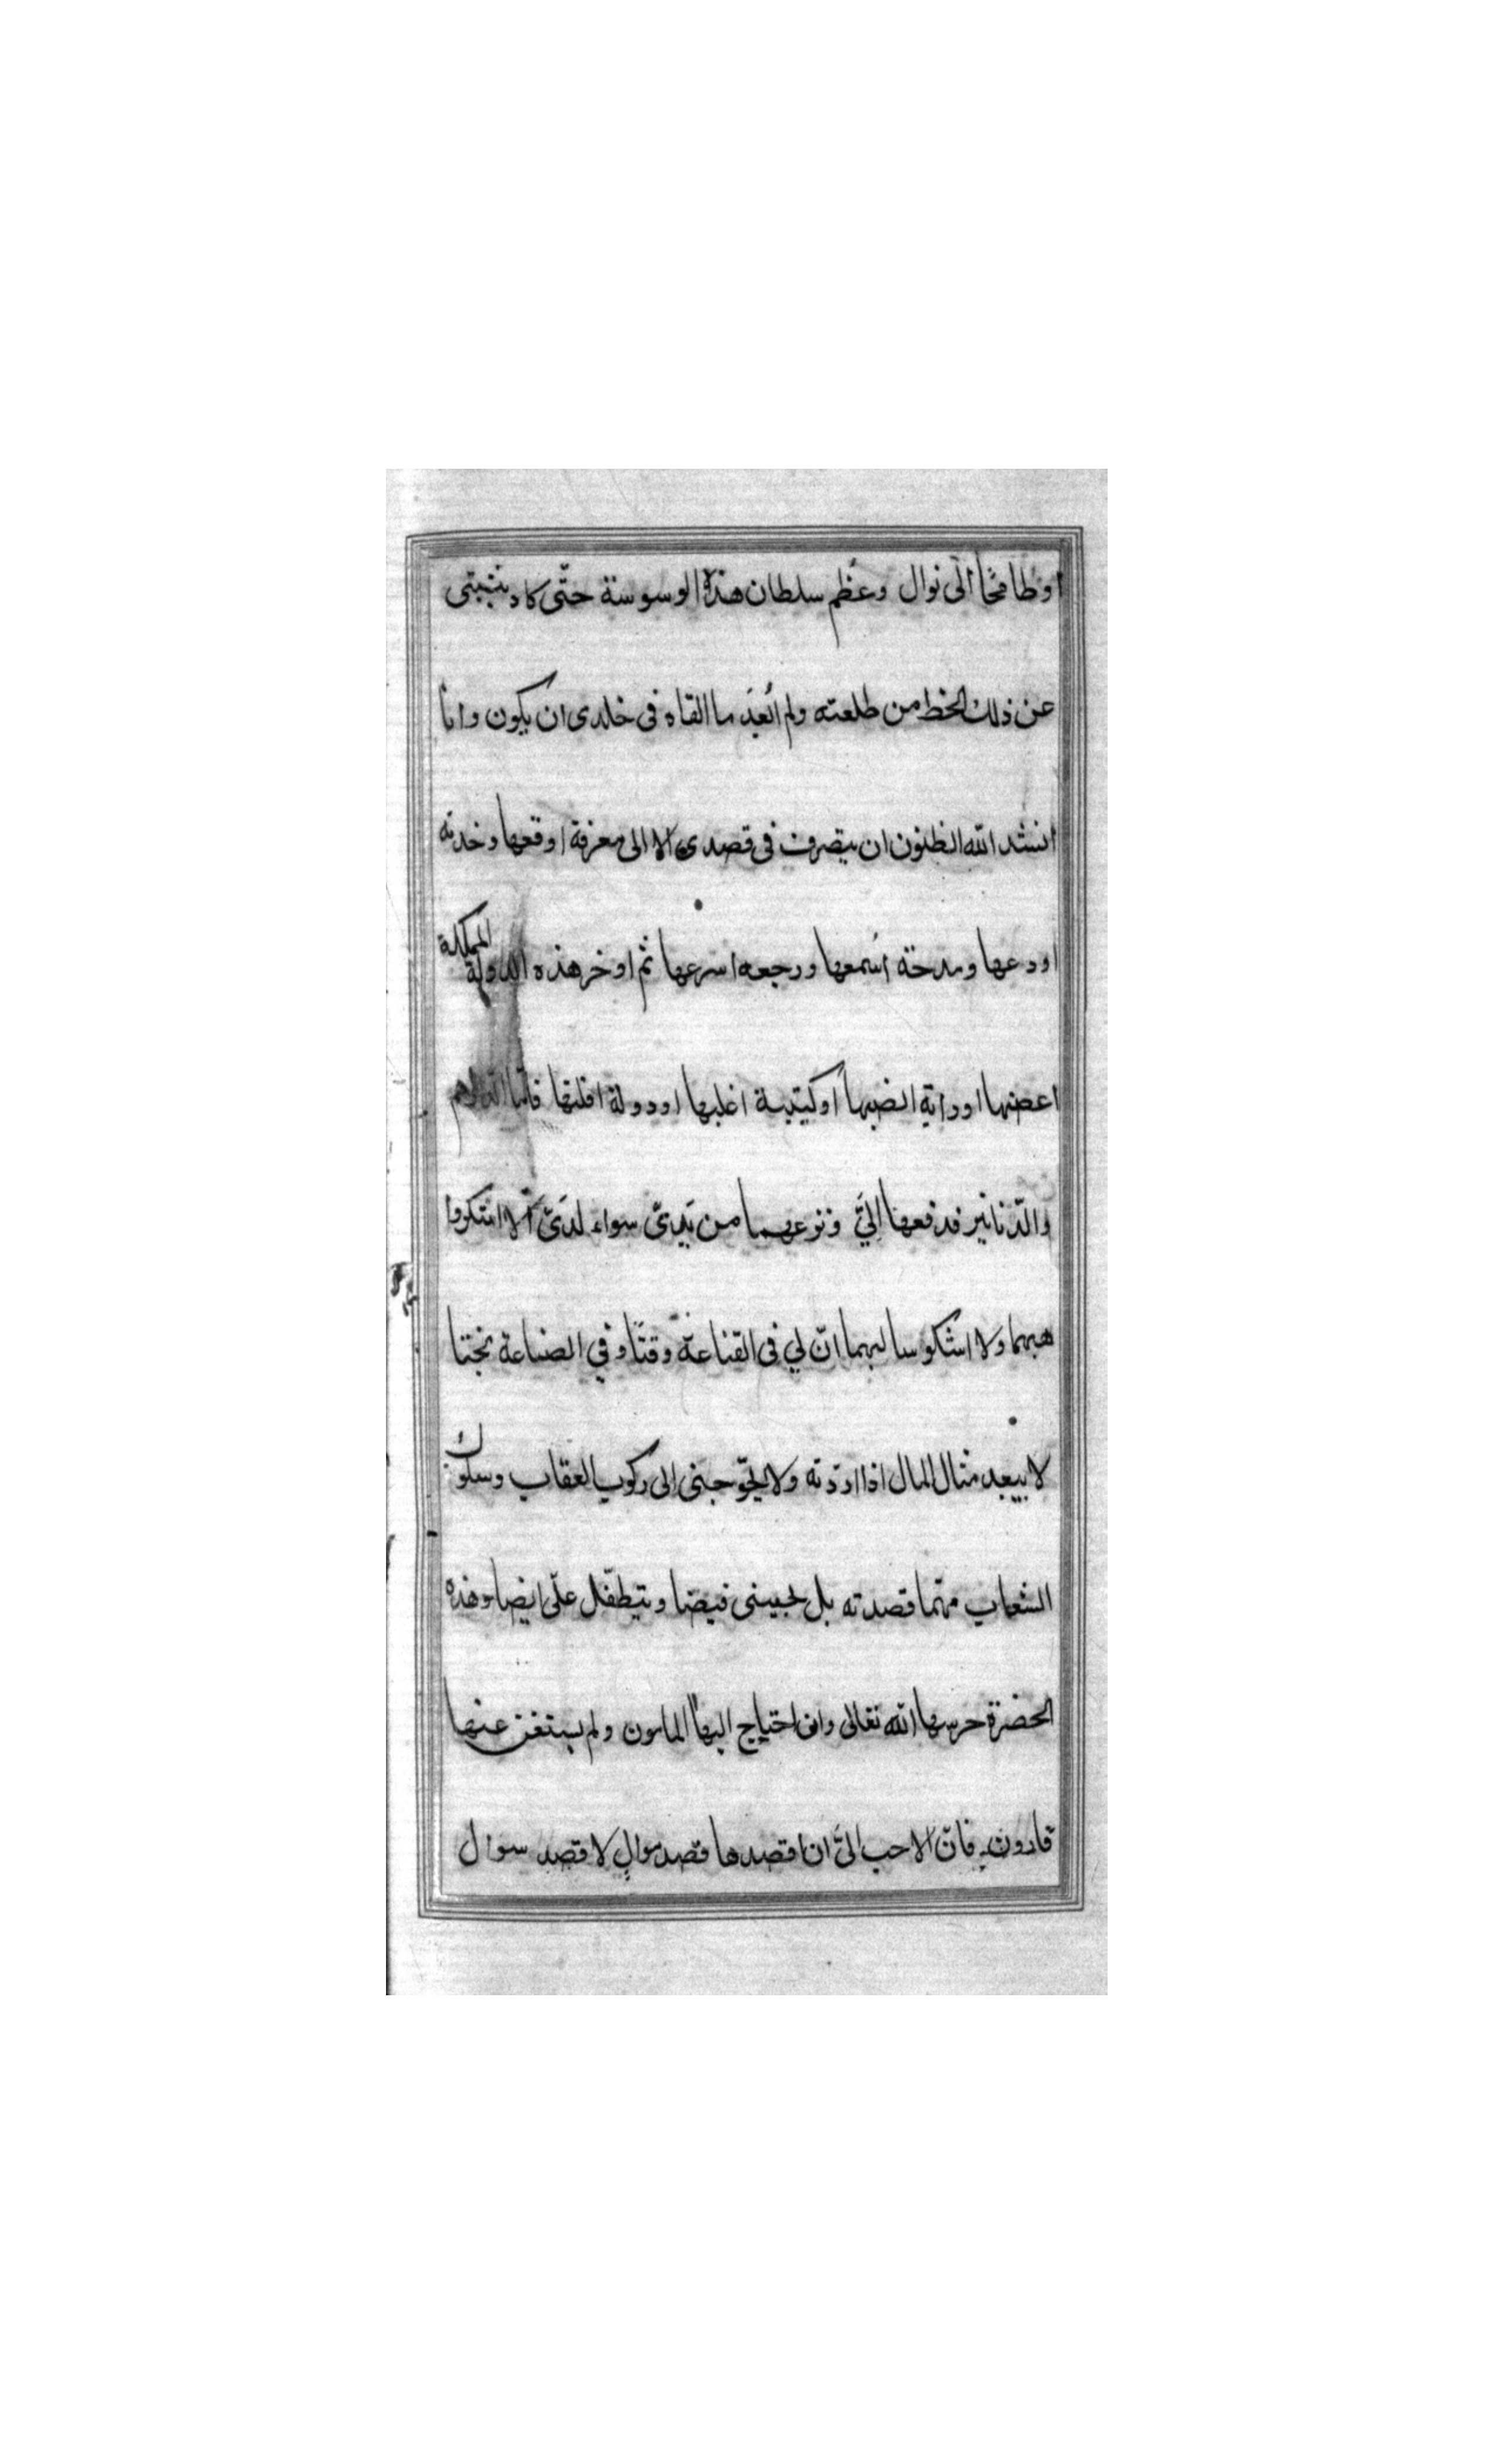 اوطامحًا الى نوال وعُظم سلطان هذه الوسوسة حتّى كاد يثنيتى
عن ذلك الخط من طلعته ولم اُبعِد ما القاه فى خلدى ان يكون وانا
انشد الله الظنون ان يتصرف فى قصدى الا الى معرفة اوقعها وخدمة
اودعها ومدحة اُسمعها ورجعه اسرعها ثم اوخر هذه الدولة المملكة
اعضها اوراية انصبها أو كتيبة اغلبها اودولة اقلبها فامّا الدراهم
والدّنانير فدفعها اليَّ ونزعهما من يَدىّ سواء لدىّ
هبهما ولا اشكو سالبهما انّ لي فى القناعة وقتًا وفي الصناعة بختا
لا يبعد منال المال اذا اردته ولا يحوجنى الى ركوب العقاب وسلوك
الشعاب مهّما قصدته بل يجيبنى فيضا ويتطفّل علىّ ايضا وهذه
الحضرة حرسها الله تعالى وان احتياج اليها المامون ولم يستغن عنها
قارون فان الاحب الىَّ ان اقصدها قصد موالٍ لا قصد سوال